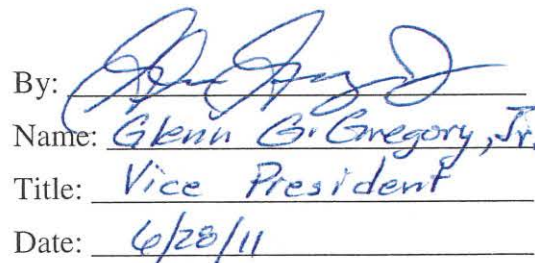 By:
Name: Glenn G. Gregory, Jr.
Title: Vice President
Date: 6/28/11